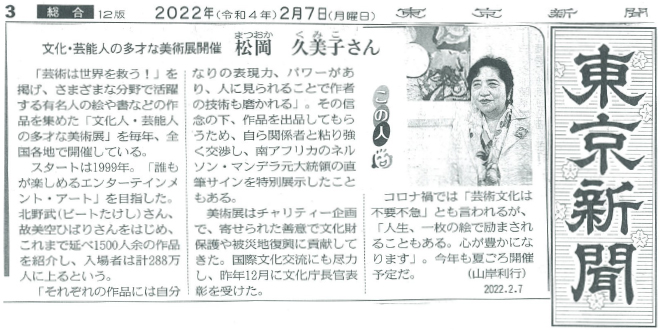 3 総合 12版 2022年(令和4年)2月7日(月曜日) 東京新聞
文化・芸能人の多才な美術展開催 松岡 久美子さん
まつおか くみこ
「芸術は世界を救う!」を
掲げ、さまざまな分野で活躍
する有名人の絵や書などの作
品を集めた「文化人・芸能人
の多才な美術展」を毎年、全
国各地で開催している。
スタートは1999年。「誰も
が楽しめるエンターテインメ
ント・アート」を目指した。
北野武(ビートたけし)さん、
故美空ひばりさんをはじめ、
これまで延べ1500人余の作品
を紹介し、入場者は計288万
人に上るという。
「それぞれの作品には自分
なりの表現力、パワーがあ
り、人に見られることで作者
の技術も磨かれる」。その信
念の下、作品を出品してもら
うため、自ら関係者と粘り強
く交渉し、南アフリカのネル
ソン・マンデラ元大統領の直
筆サインを特別展示したこと
もある。
美術展はチャリティー企画
で、寄せられた善意で文化財
保護や被災地復興に貢献して
きた。国際文化交流にも尽力
し、昨年12月に文化庁長官表
彰を受けた。
この人
コロナ禍では「芸術文化は
不要不急」とも言われるが、
「人生、一枚の絵で励まされ
ることもある。心が豊かにな
ります」。今年も夏ごろ開催
予定だ。 (山岸利行)
2022.2.7
東京新聞